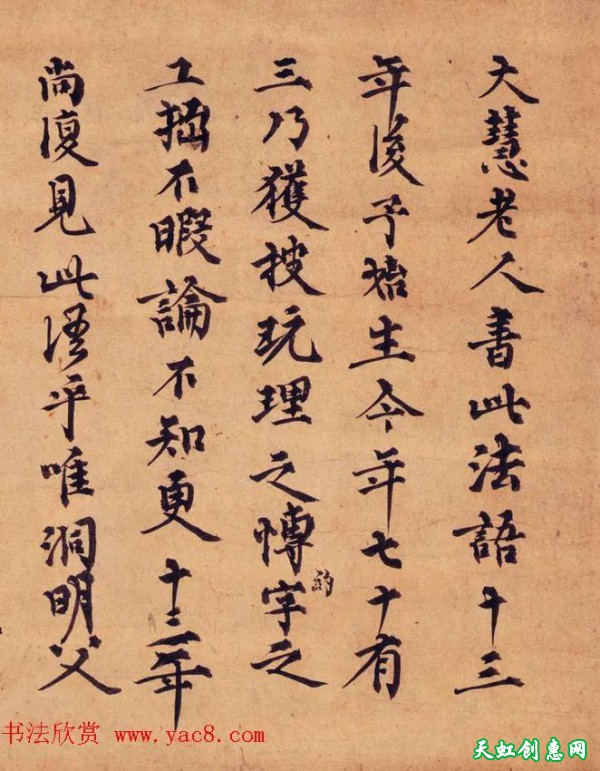 大慧老人書此法語十三
年後予始生今年七十有
三乃獲披玩理之字之
的
工拙不暇論不知更十三年
尚復見此語乎唯洞明父
书法欣赏 www.yac8.com
天虹创惠网